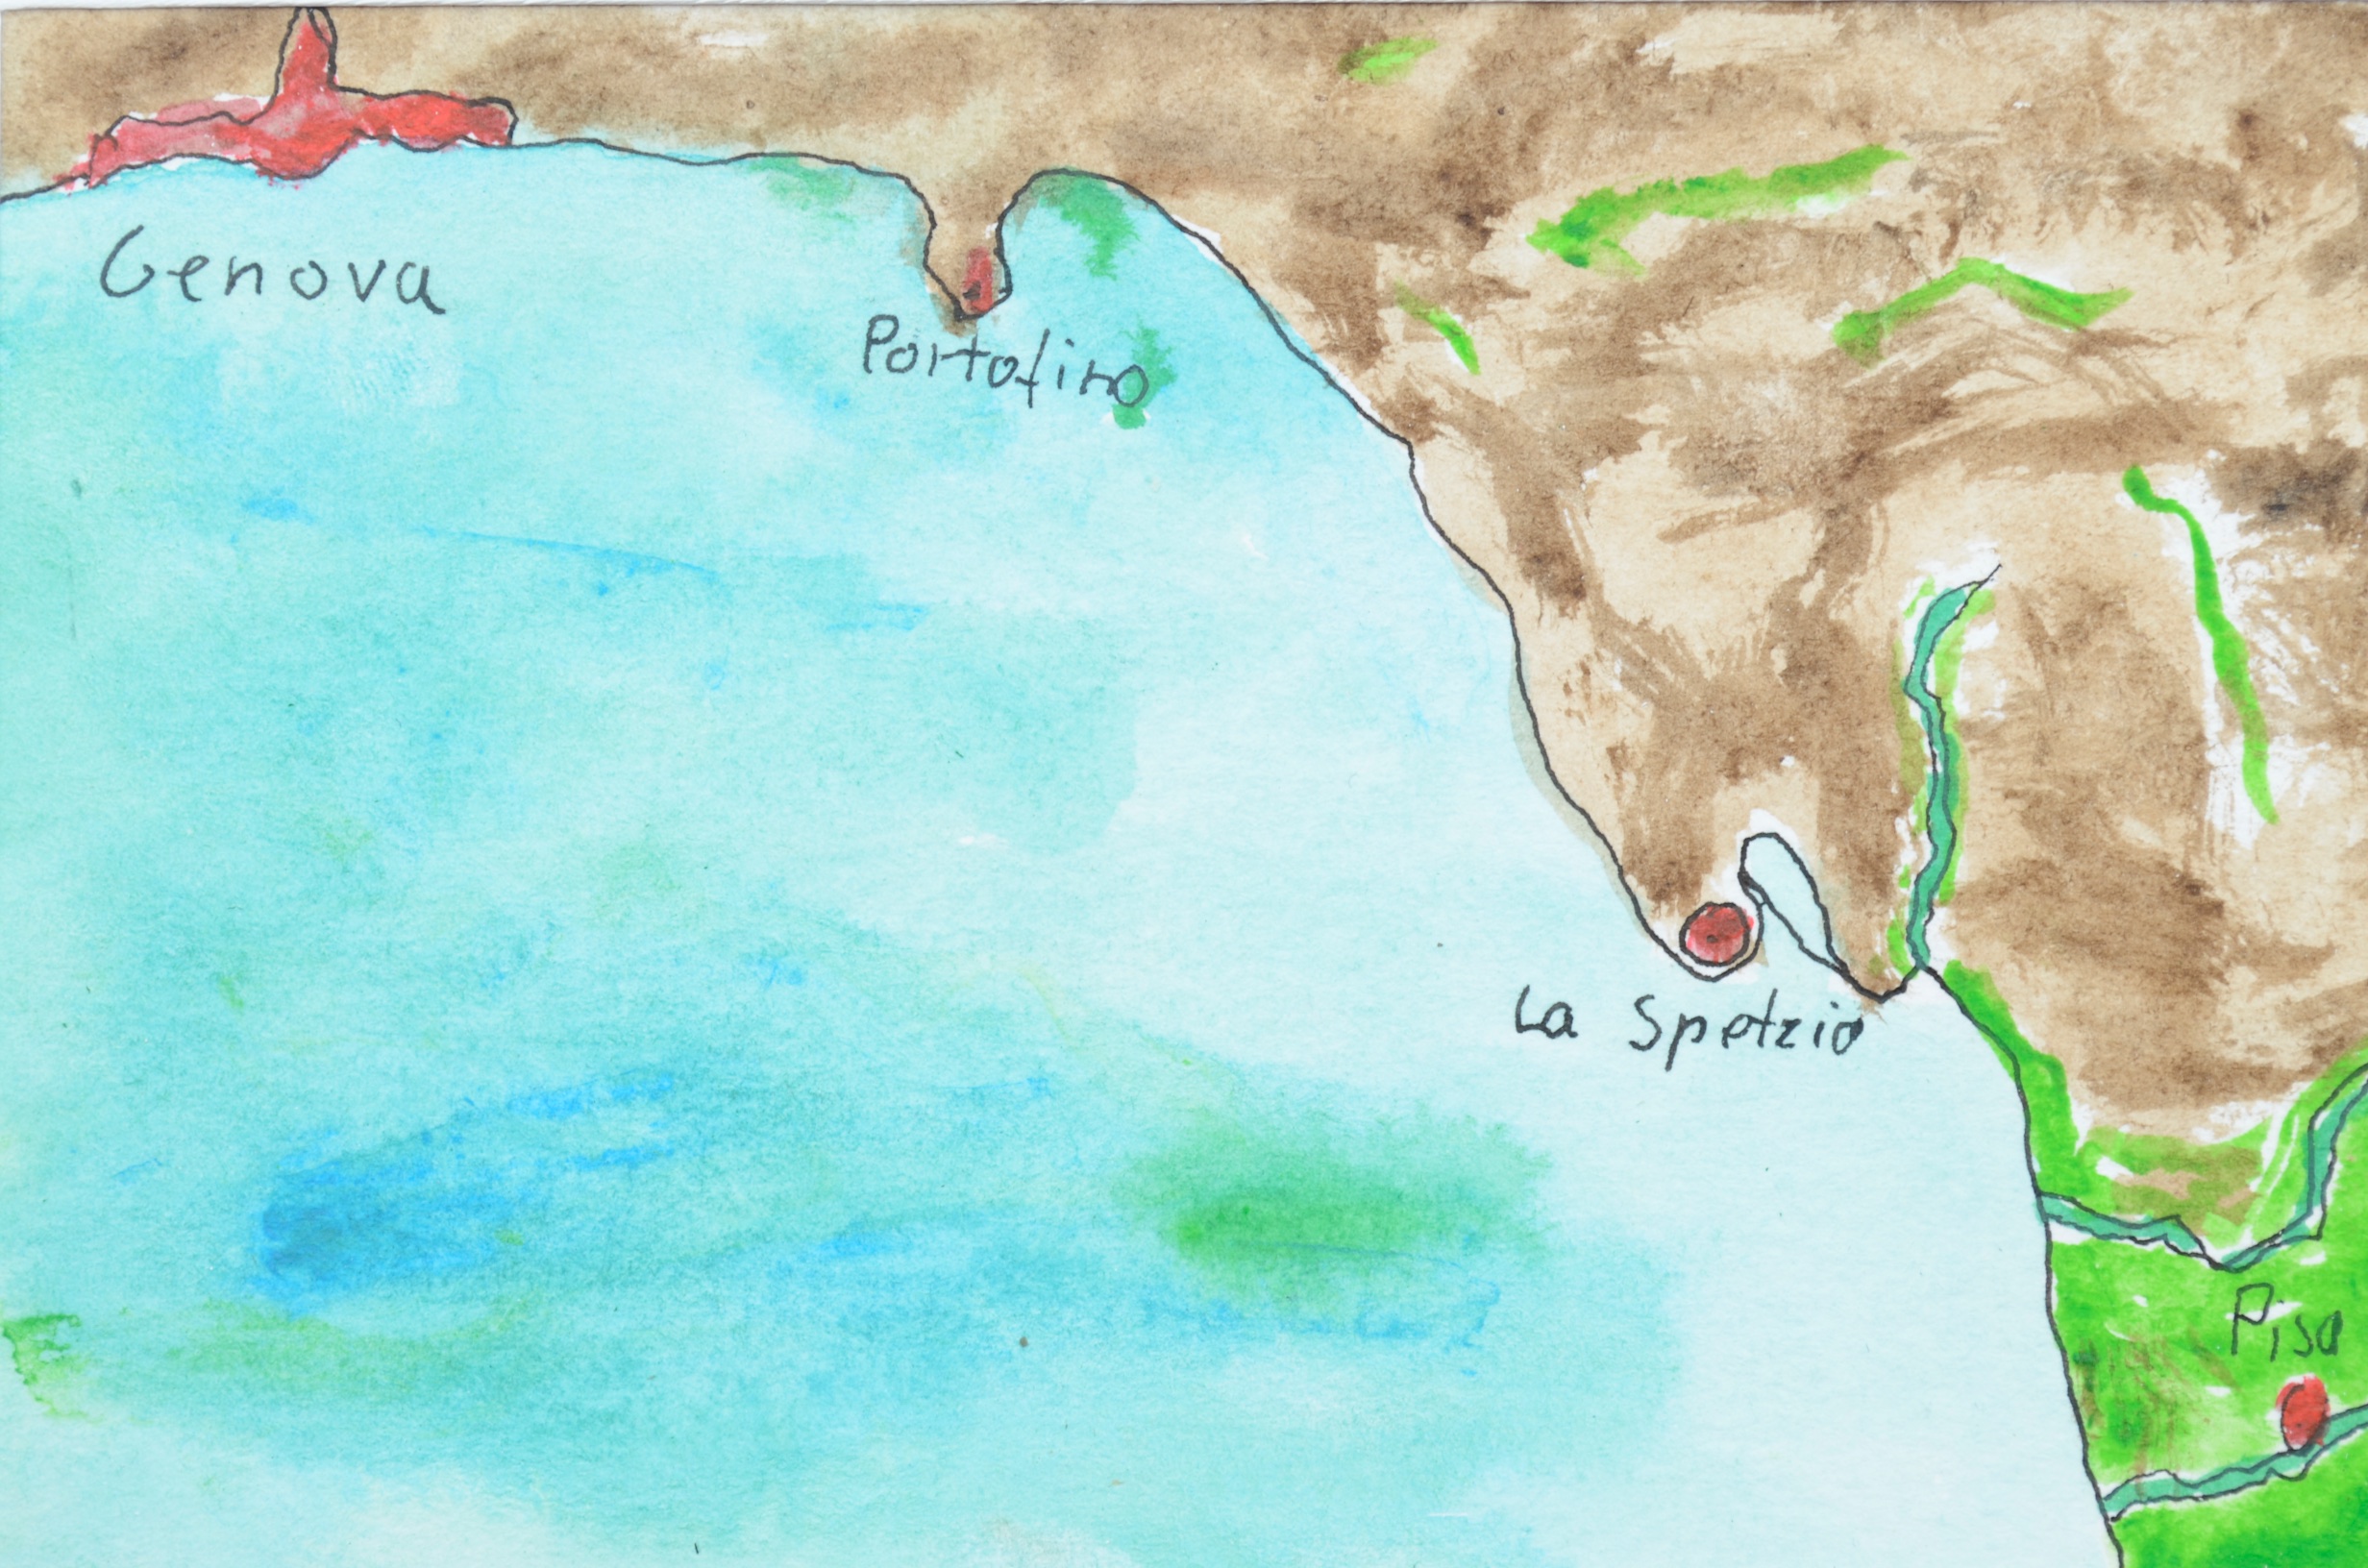 Genova
Portofino
La Spetzia
Pisa